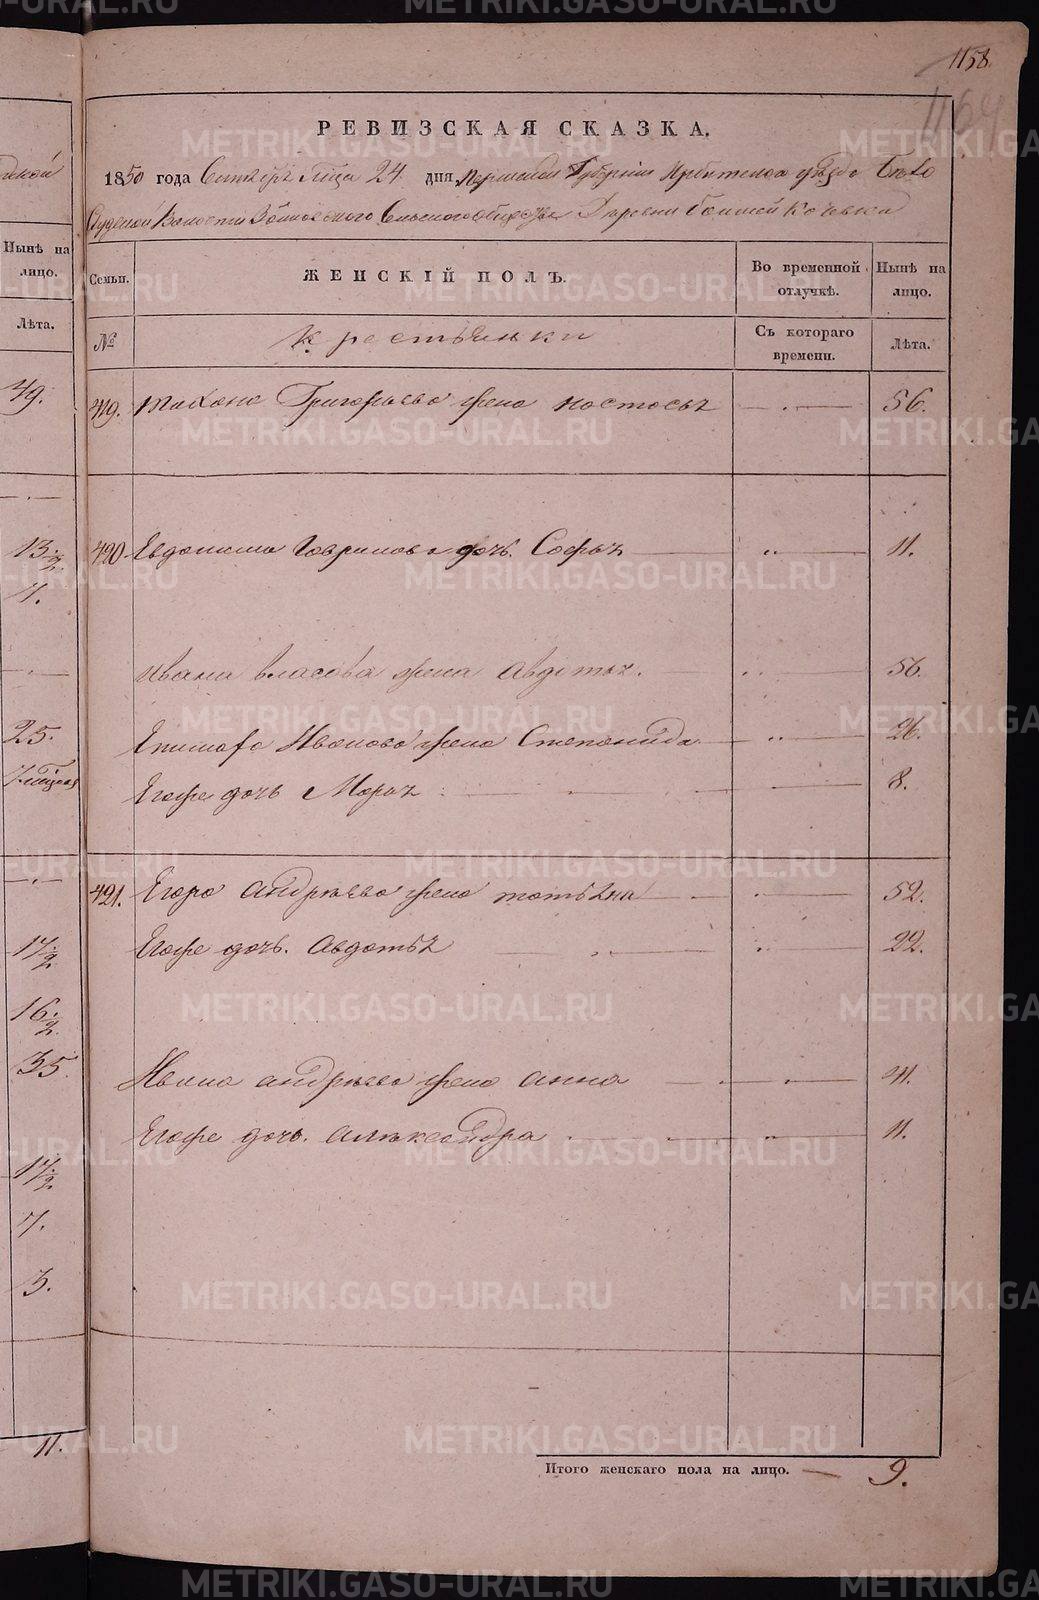 1158.
1164
РЕВИЗСКАЯ СКАЗКА.
1850 года Сентября Месяца 24 дня, Пермской Губернии Ирбитского уезда Бело
Слудской Волости Сельского общества Деревни Большей Кочевки
Нынѣ на лицо.
Лѣта.
Семьи.
№
ЖЕНСКІЙ ПОЛЪ.
Крестьянки
Во временной отлучкѣ.
Съ котораго времени.
Нынѣ на лицо.
Лѣта.
419. Григорьева жена Настасья — 56.
420 Евдокима Гаврилова дочь. Софья — 11.
Ивана Власова жена Авдотья. — 56.
Епимаха Иванова жена Степанида — 26.
Егоже дочь Марья — 8.
421. Егора Андреева жена Татьяна — 52.
Егоже дочь. Авдотья — 22.
Ивана Андреева жена Анна — 41.
Егоже дочь. Александра — 11.
Итого женскаго пола на лицо. — 9.
49.
13 1/2
7.
25.
17 1/2
16 1/2
35.
17 1/2
7.
3.
11.
METRIKI.GASO-URAL.RU